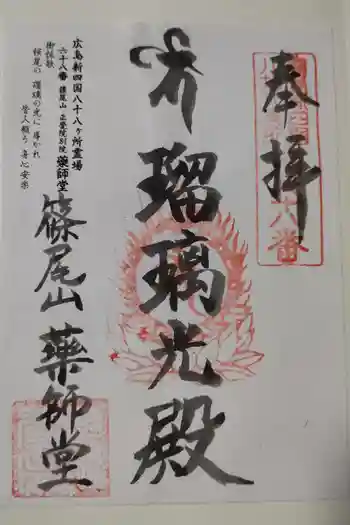 奉拝
八番
瑠璃光殿
広島新四国八十八ヶ所霊場
六十八番 篠尾山 正覺院別院 藥師堂
御詠歌
桜尾の 瓔璃の光に 導かれ
皆人願う 身心安楽
篠尾山 藥師堂